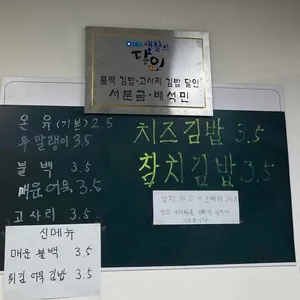 생활의
달인
블백 김밥·고사리 김밥 달인
서분금·배석민
온유(기본) 2.5
우말랭이 3.5
블백 3.5
매운 어묵 3.5
고사리 3.5
치즈김밥 3.5
참치김밥 3.5
신메뉴
매운불백 3.5
튀김 어묵 김밥 3.5